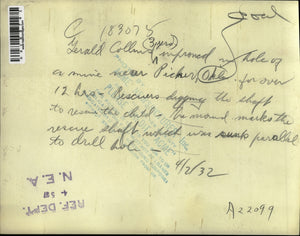 C 183075
goal
Gerald Collins (3 yrs) imprisoned in hole of
a mine near Picher, Okla for over
12 hrs - Rescuers digging the shaft
to rescue the child - The mound marks the
rescue shaft which was sunk parallel
to drill hole -
4/2/32
REF. DEPT.
N. E. A.
A22099